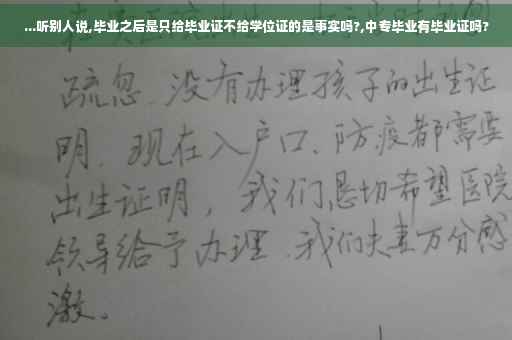 ...听别人说,毕业之后是只给毕业证不给学位证的是事实吗?,中专毕业有毕业证吗?
疏忽、没有办理孩子的出生证
明、现在入户口、防疫都需要
出生证明，我们恳切希望医院
领导给予办理、我们夫妻万分感
激。